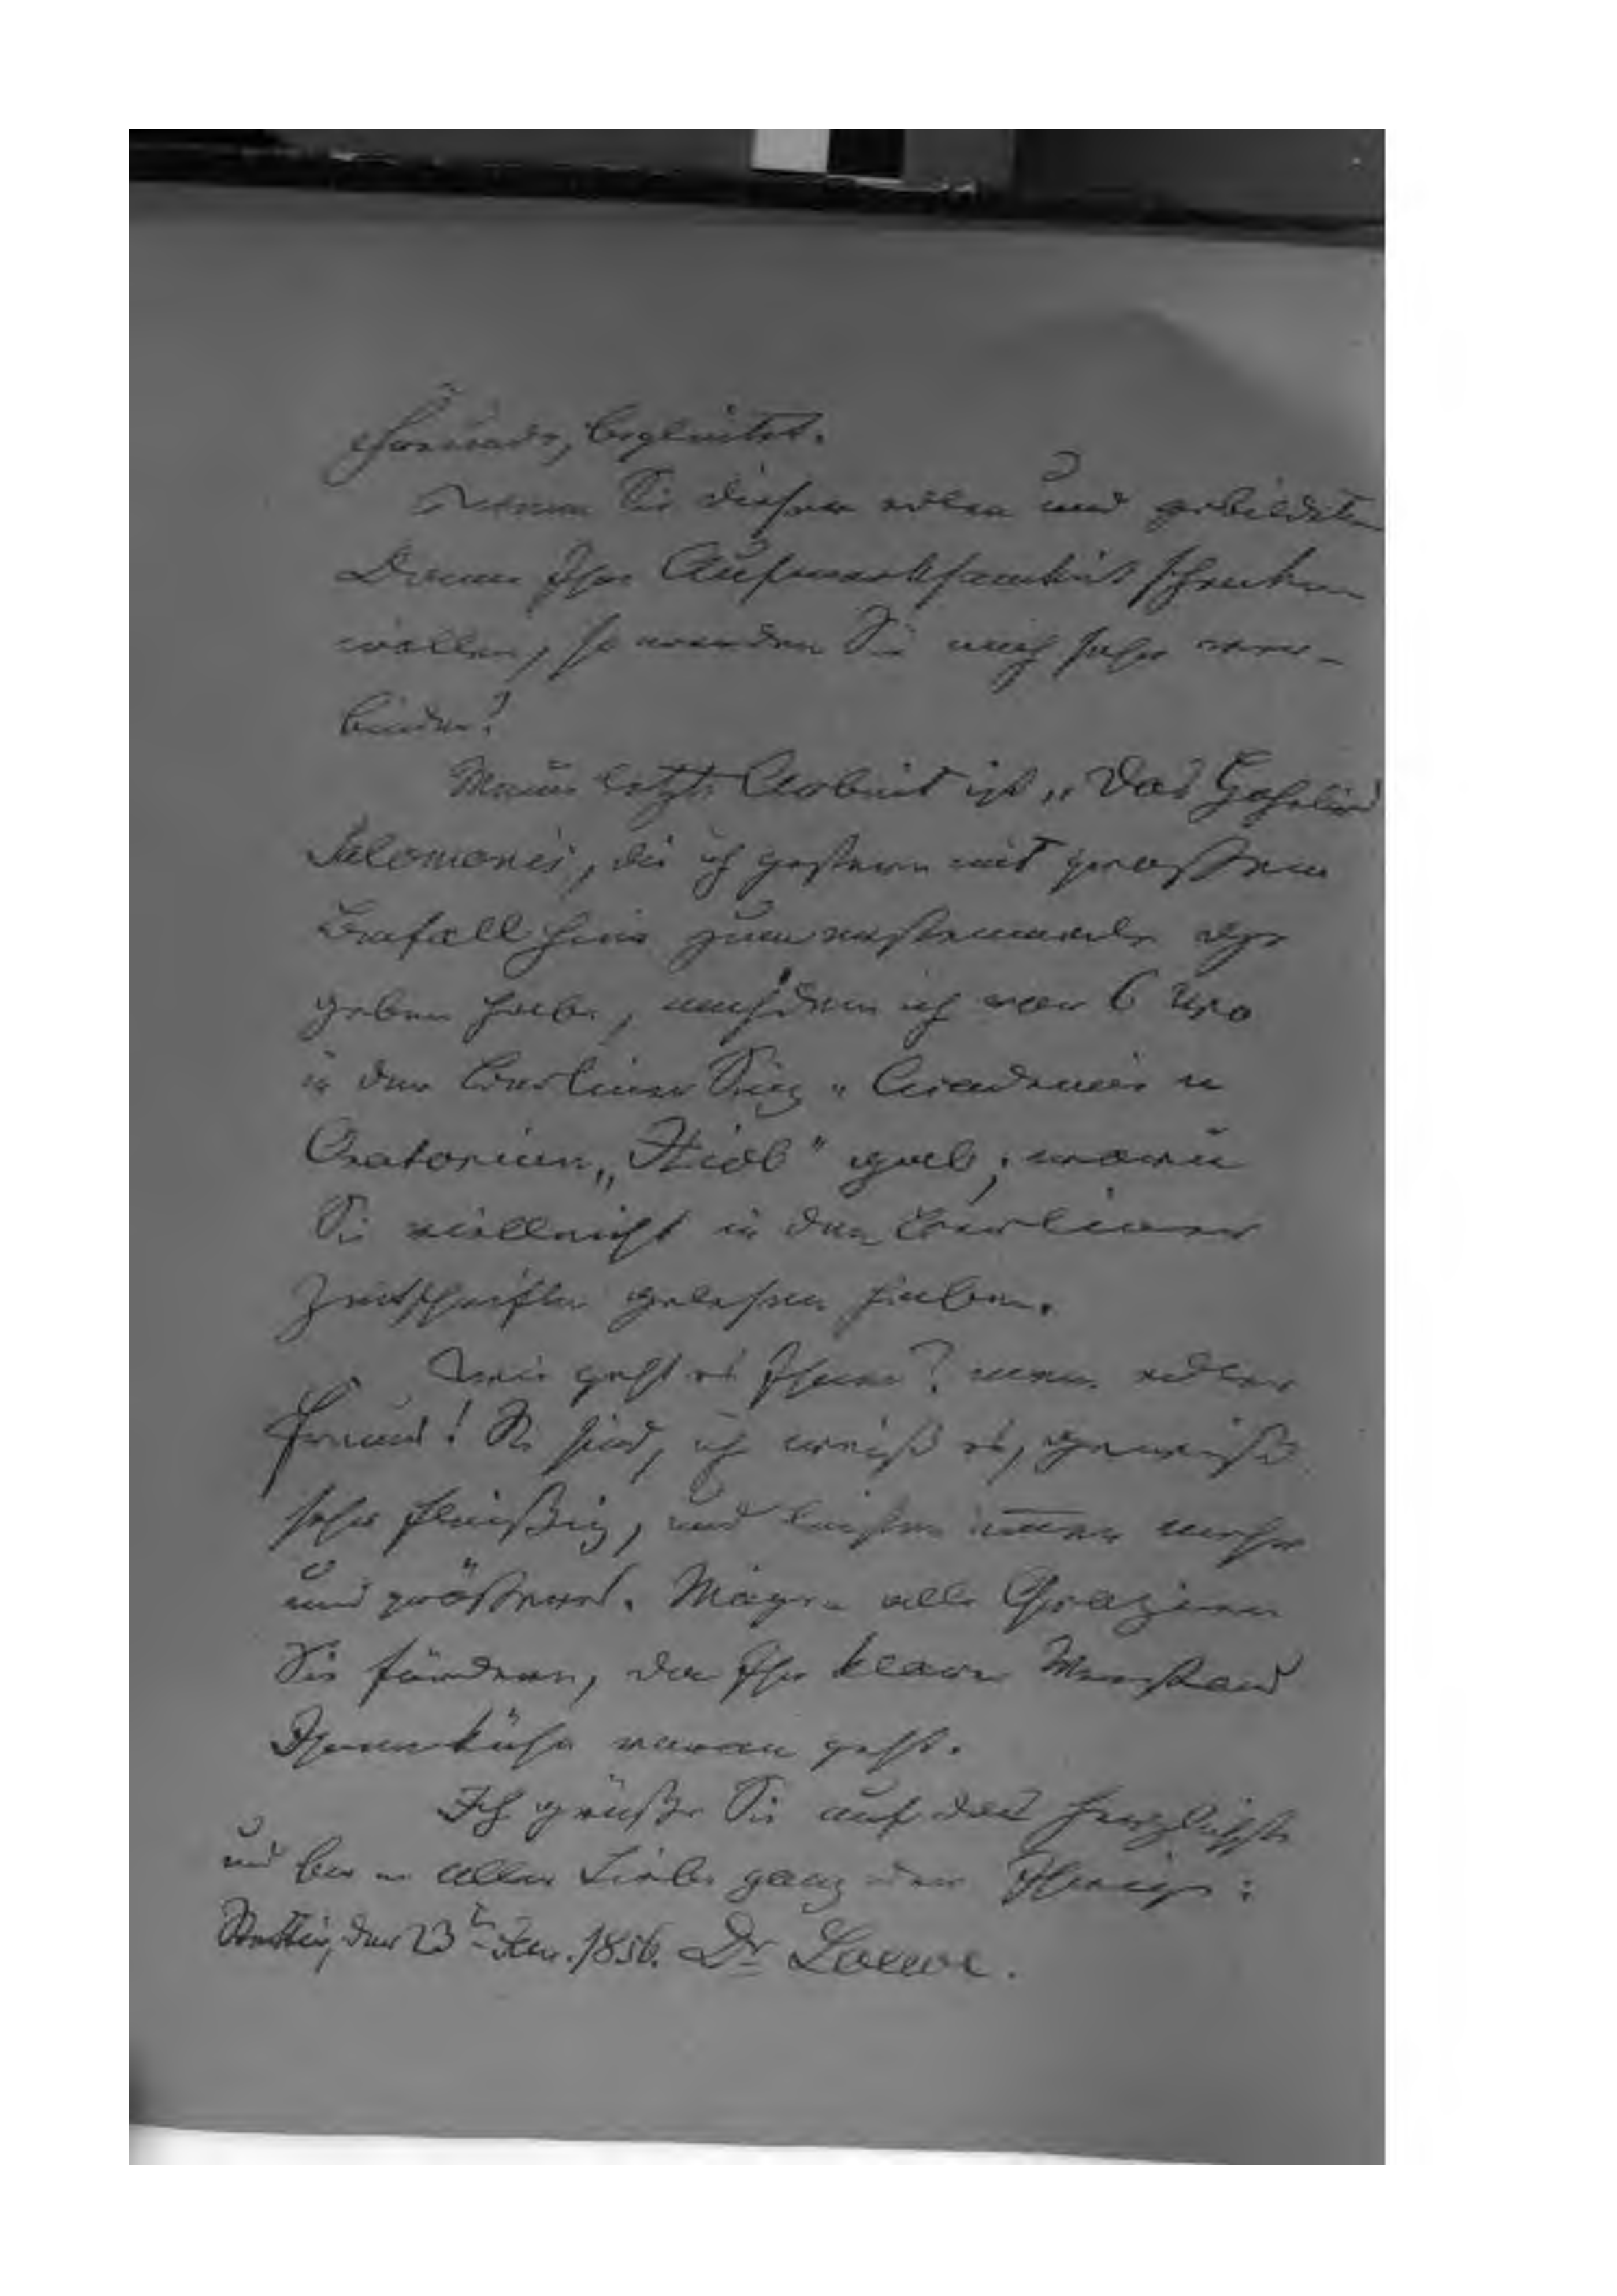 Freunde, begleitet.
Wenn Sie diesen edlen und gebildeten
Damen Ihre Aufmerksamkeit schenken
wollen, so werden Sie mich sehr ver-
binden!
Meine letzte Arbeit ist „Das Hohelied
Salomonis, die ich gestern mit großem
Beifall hier zum erstenmale
geben habe, nachdem ich vor 6
in der Berliner Sing-Academie
Oratorium „Hiob" gab; wovon
Sie vielleicht in den Berliner
Zeitschriften gelesen haben.
Wie geht es Ihnen? mein edler
Freund! Sie sind, ich weiß es, gewiß
sehr fleißig, und leisten immer mehr
und größeres. Mögen alle Grazien
Sie fördern, da Ihr klarer Verstand
Ihnen kühn voran geht.
Ich grüße Sie auf das herzlichste
und bin in aller Liebe ganz der Ihrige:
Stettin, den 23 1856. Dr Loewe.